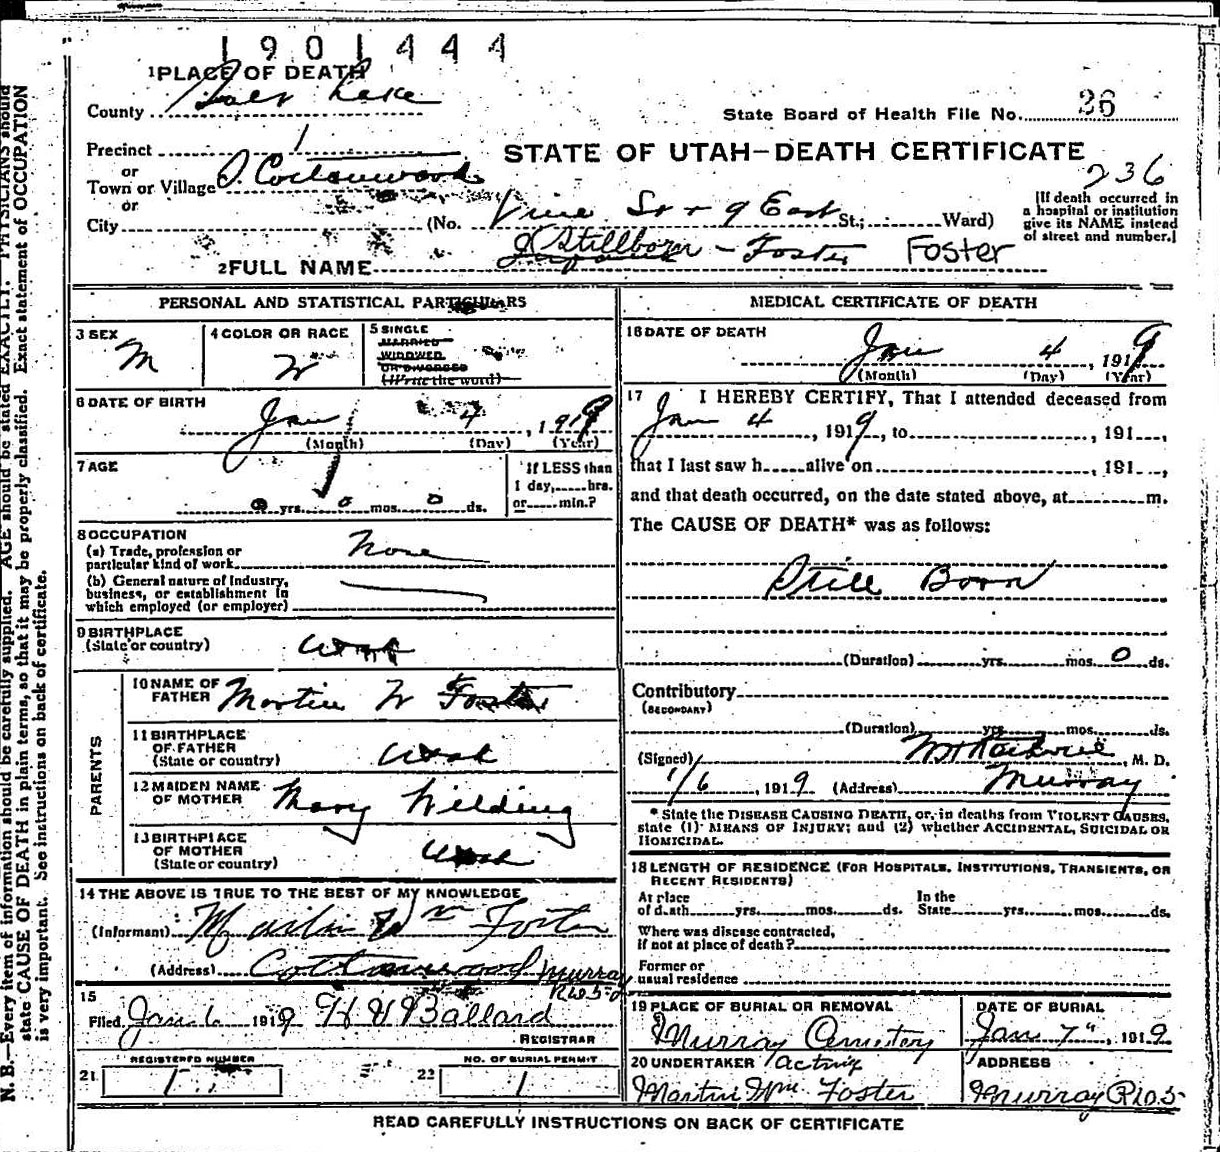 1901444
1 PLACE OF DEATH
County Salt Lake
State Board of Health File No. 36
Precinct 1
STATE OF UTAH—DEATH CERTIFICATE
or
Town or Village S. Cottonwood
236
or
City (No. Vine St + 9 East St.; Ward)
[If death occurred in
a hospital or institution
give its NAME instead
of street and number.]
2 FULL NAME Stillborn - Foster Foster
PERSONAL AND STATISTICAL PARTICULARS
3 SEX M
4 COLOR OR RACE W
5 SINGLE
MARRIED
WIDOWED
OR DIVORCED
(Write the word)
6 DATE OF BIRTH
Jan 4, 1919
(Month) (Day) (Year)
7 AGE
0 yrs. 0 mos. 0 ds.
If LESS than
1 day, hrs.
or min.?
8 OCCUPATION
(a) Trade, profession or
particular kind of work None
(b) General nature of Industry,
business, or establishment in
which employed (or employer)
9 BIRTHPLACE
(State or country) Utah
PARENTS
10 NAME OF
FATHER Martin W Foster
11 BIRTHPLACE
OF FATHER
(State or country) Utah
12 MAIDEN NAME
OF MOTHER Mary Wilding
13 BIRTHPLACE
OF MOTHER
(State or country) Utah
14 THE ABOVE IS TRUE TO THE BEST OF MY KNOWLEDGE
(Informant) Martin Wm Foster
(Address) Cottonwood Murray
15
Filed Jan. 6 1919 H V Ballard
REGISTRAR
REGISTERED NUMBER
21 1
NO. OF BURIAL PERMIT
22 1
MEDICAL CERTIFICATE OF DEATH
16 DATE OF DEATH
Jan 4, 1919
(Month) (Day) (Year)
17 I HEREBY CERTIFY, That I attended deceased from
Jan 4, 1919, to , 191 ,
that I last saw h alive on , 191 ,
and that death occurred, on the date stated above, at m.
The CAUSE OF DEATH* was as follows:
Still Born
(Duration) yrs. mos. 0 ds.
Contributory
(SECONDARY)
(Duration) yrs. mos. ds.
(Signed) , M. D.
1/6, 1919 (Address) Murray
* State the DISEASE CAUSING DEATH, or, in deaths from VIOLENT CAUSES,
state (1) MEANS OF INJURY; and (2) whether ACCIDENTAL, SUICIDAL OR
HOMICIDAL.
18 LENGTH OF RESIDENCE (FOR HOSPITALS, INSTITUTIONS, TRANSIENTS, OR
RECENT RESIDENTS)
At place
of death yrs. mos. ds.
In the
State yrs. mos. ds.
Where was disease contracted,
if not at place of death?
Former or
usual residence
19 PLACE OF BURIAL OR REMOVAL
Murray Cemetery
DATE OF BURIAL
Jan 7", 1919
20 UNDERTAKER Acting
Martin Wm. Foster
ADDRESS
Murray
READ CAREFULLY INSTRUCTIONS ON BACK OF CERTIFICATE
N. B.—Every item of information should be carefully supplied. AGE should be stated EXACTLY. PHYSICIANS should
state CAUSE OF DEATH in plain terms, so that it may be properly classified. Exact statement of OCCUPATION
is very important. See instructions on back of certificate.